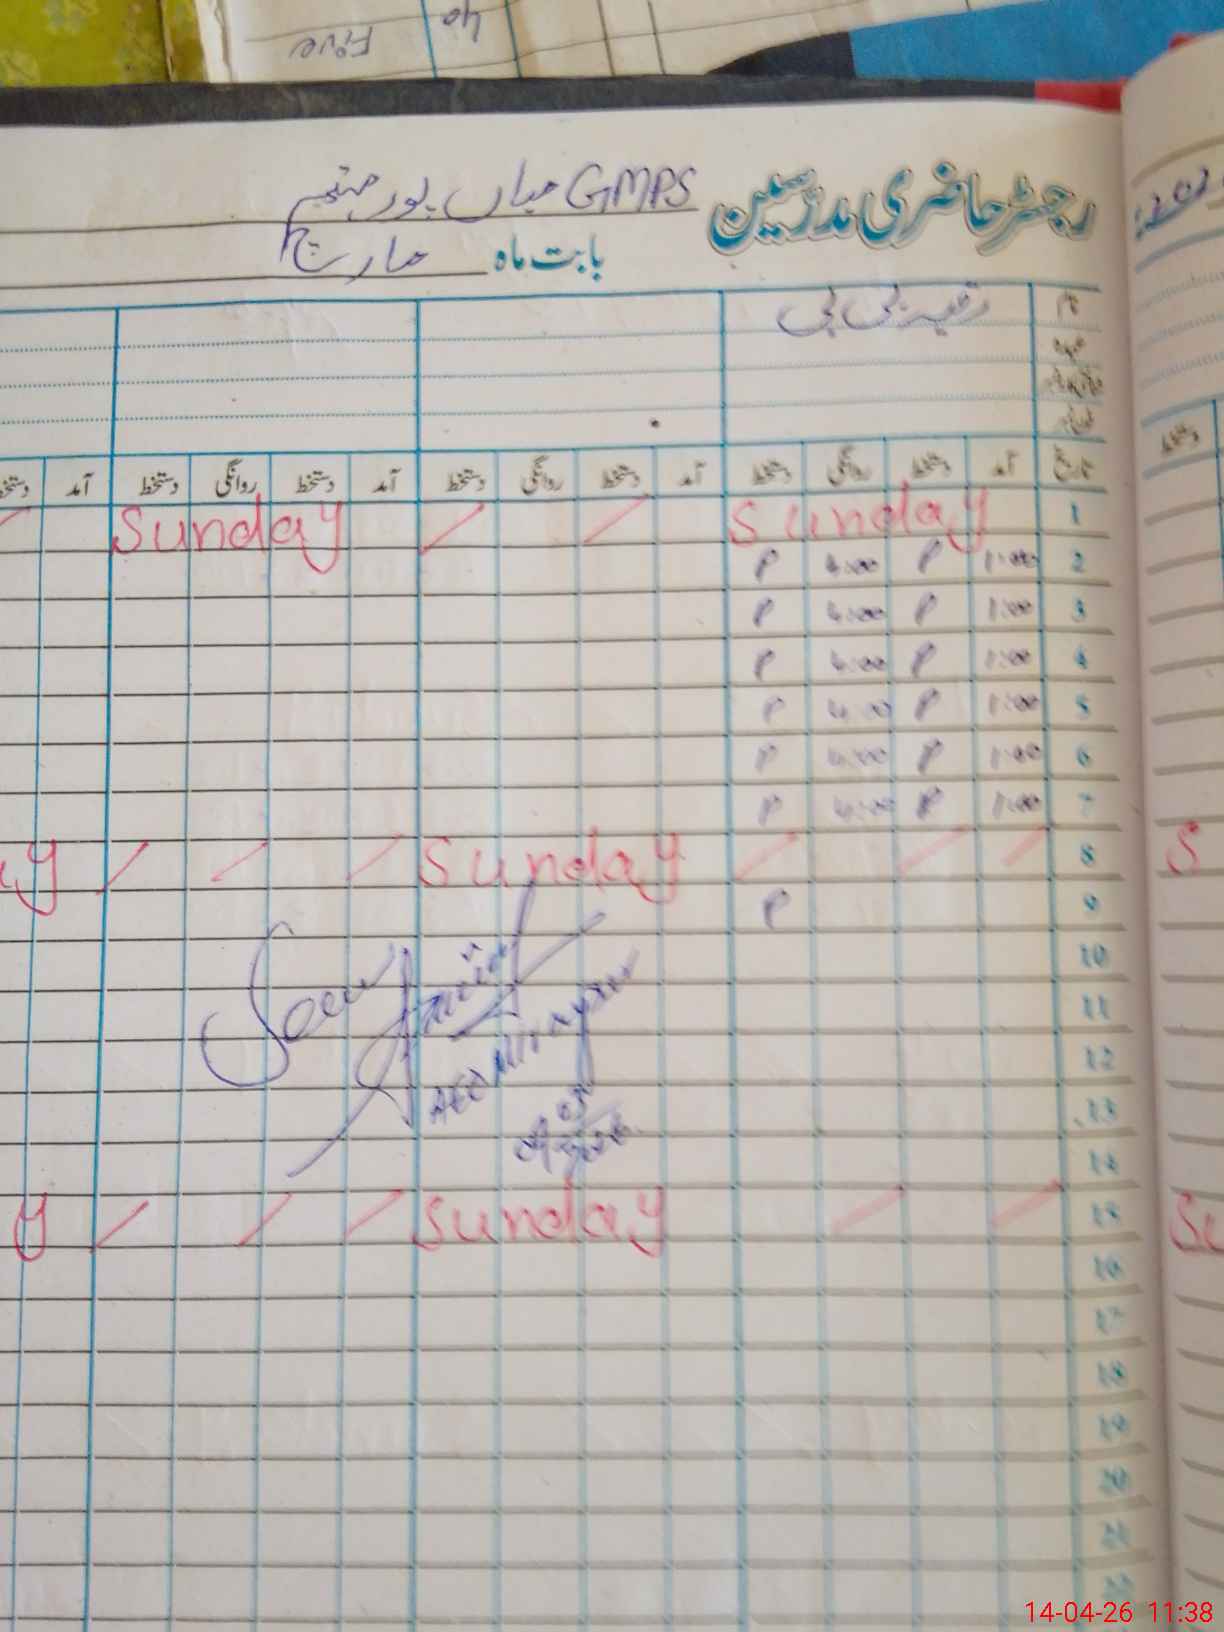 Five
40
رجسٹر حاضری مدرسین GMPS میاں پور
بابت ماہ مارچ
نام رقیہ بی بی
عہدہ
تاریخ آمد دستخط روانگی دستخط آمد دستخط روانگی دستخط آمد دستخط روانگی دستخط آمد دستخط
دستخط
1 Sunday Sunday
2 1:00 P 4:00 P
3 1:00 P 4:00 P
4 1:00 P 4:00 P
5 1:00 P 4:00 P
6 1:00 P 4:00 P
7 1:00 P 4:00 P
8 Sunday ay S
9 P
10
11
12
13
14
15 Sunday y Su
16
17
18
19
20
21
22
Seen
AEO
14-04-26 11:38